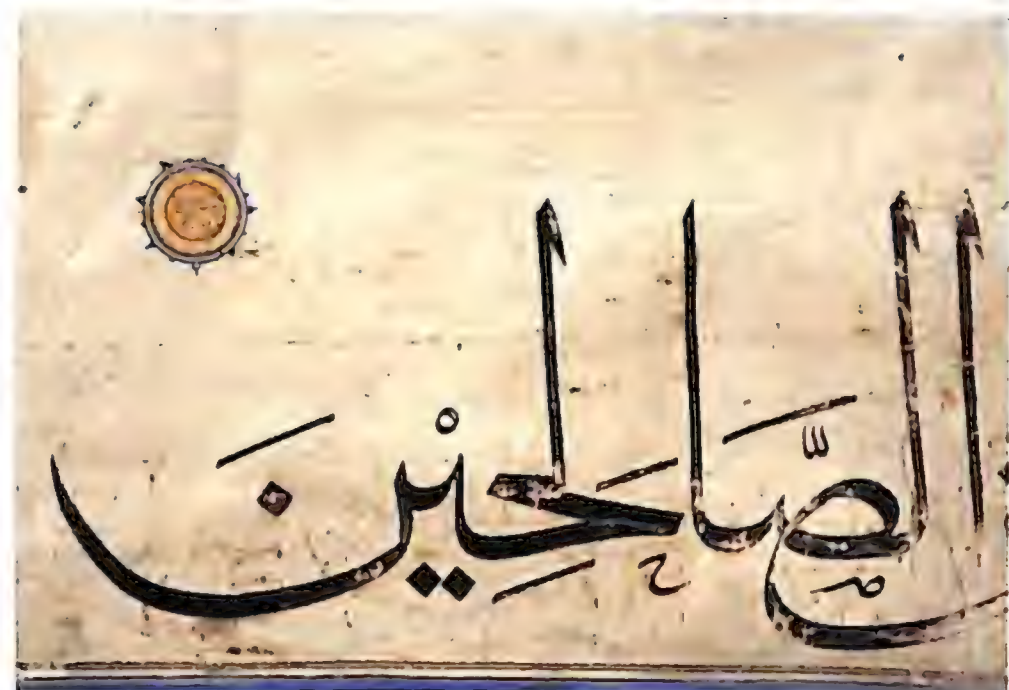 الصَّالِحِيْنَ